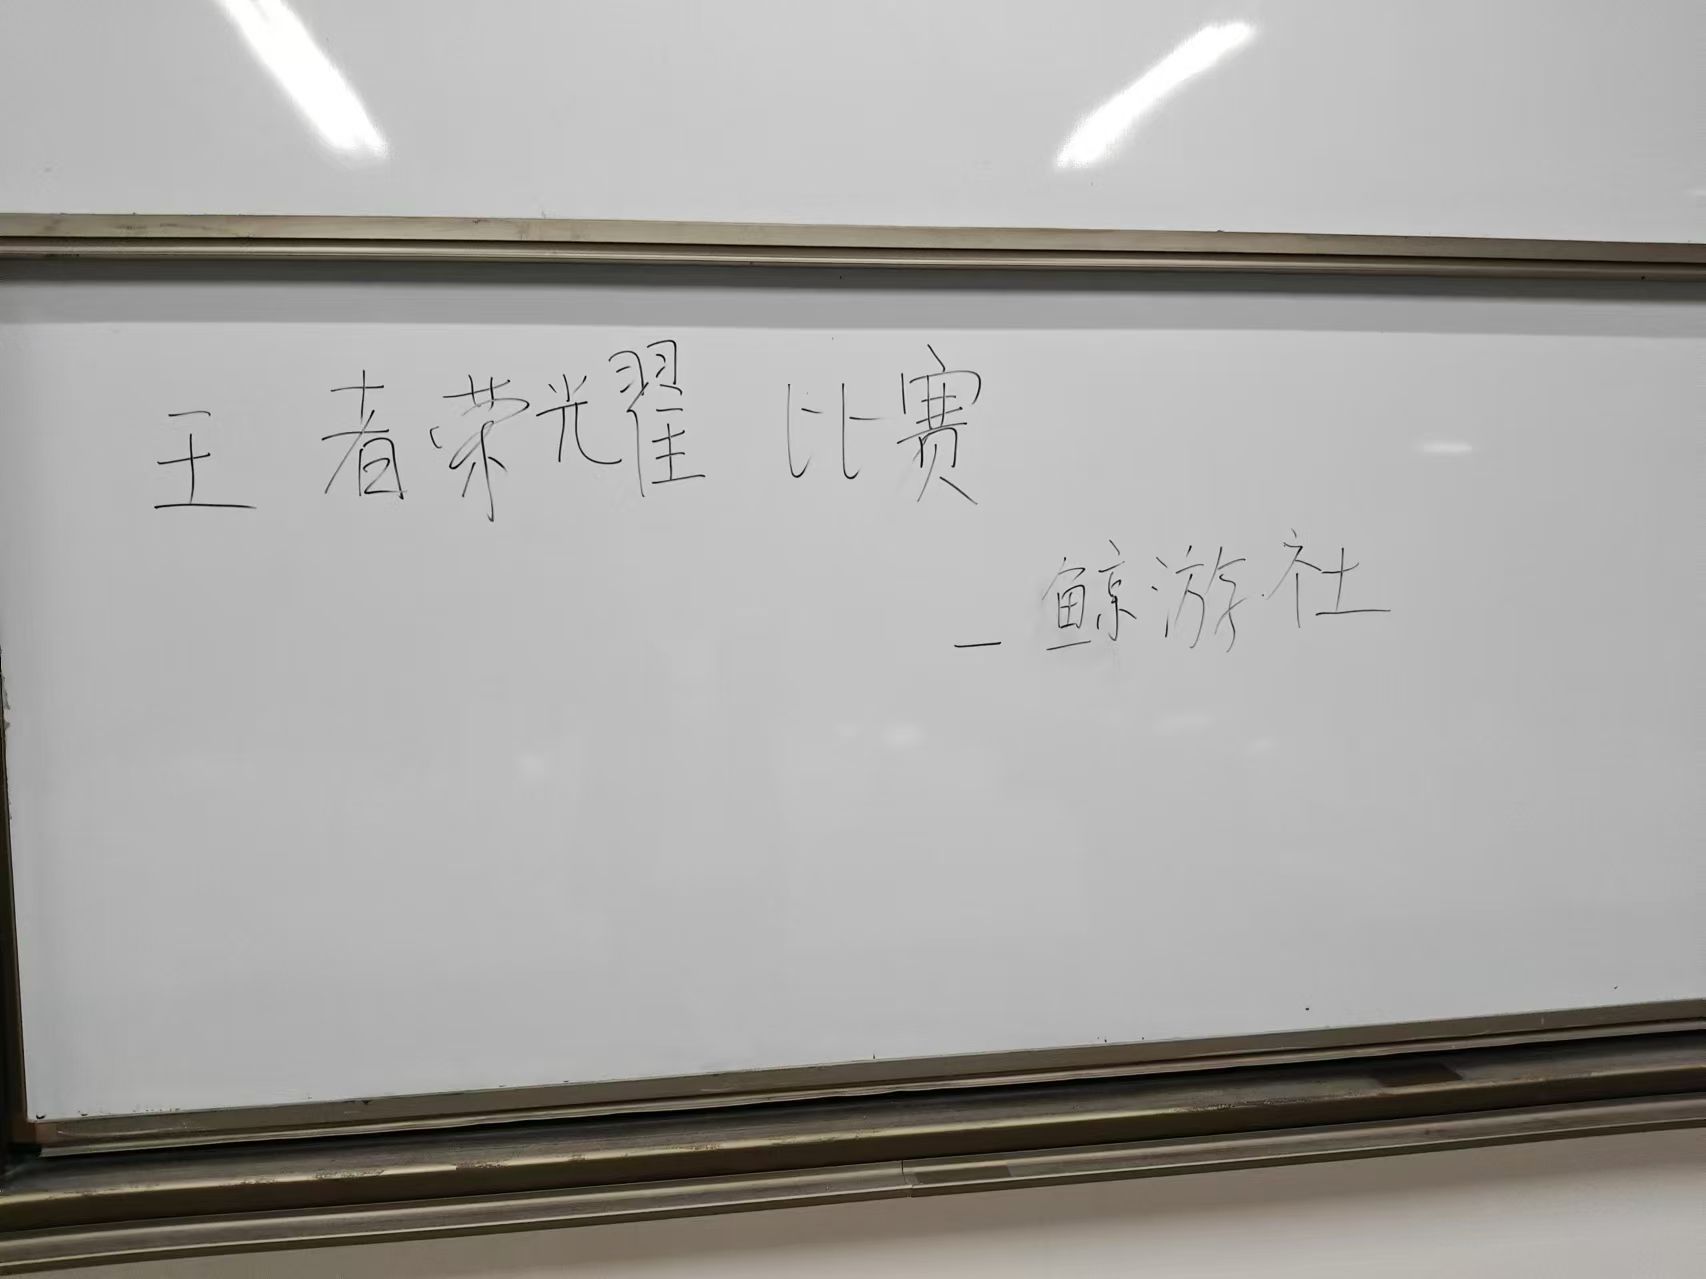 王者荣耀 比赛
- 鲸游社